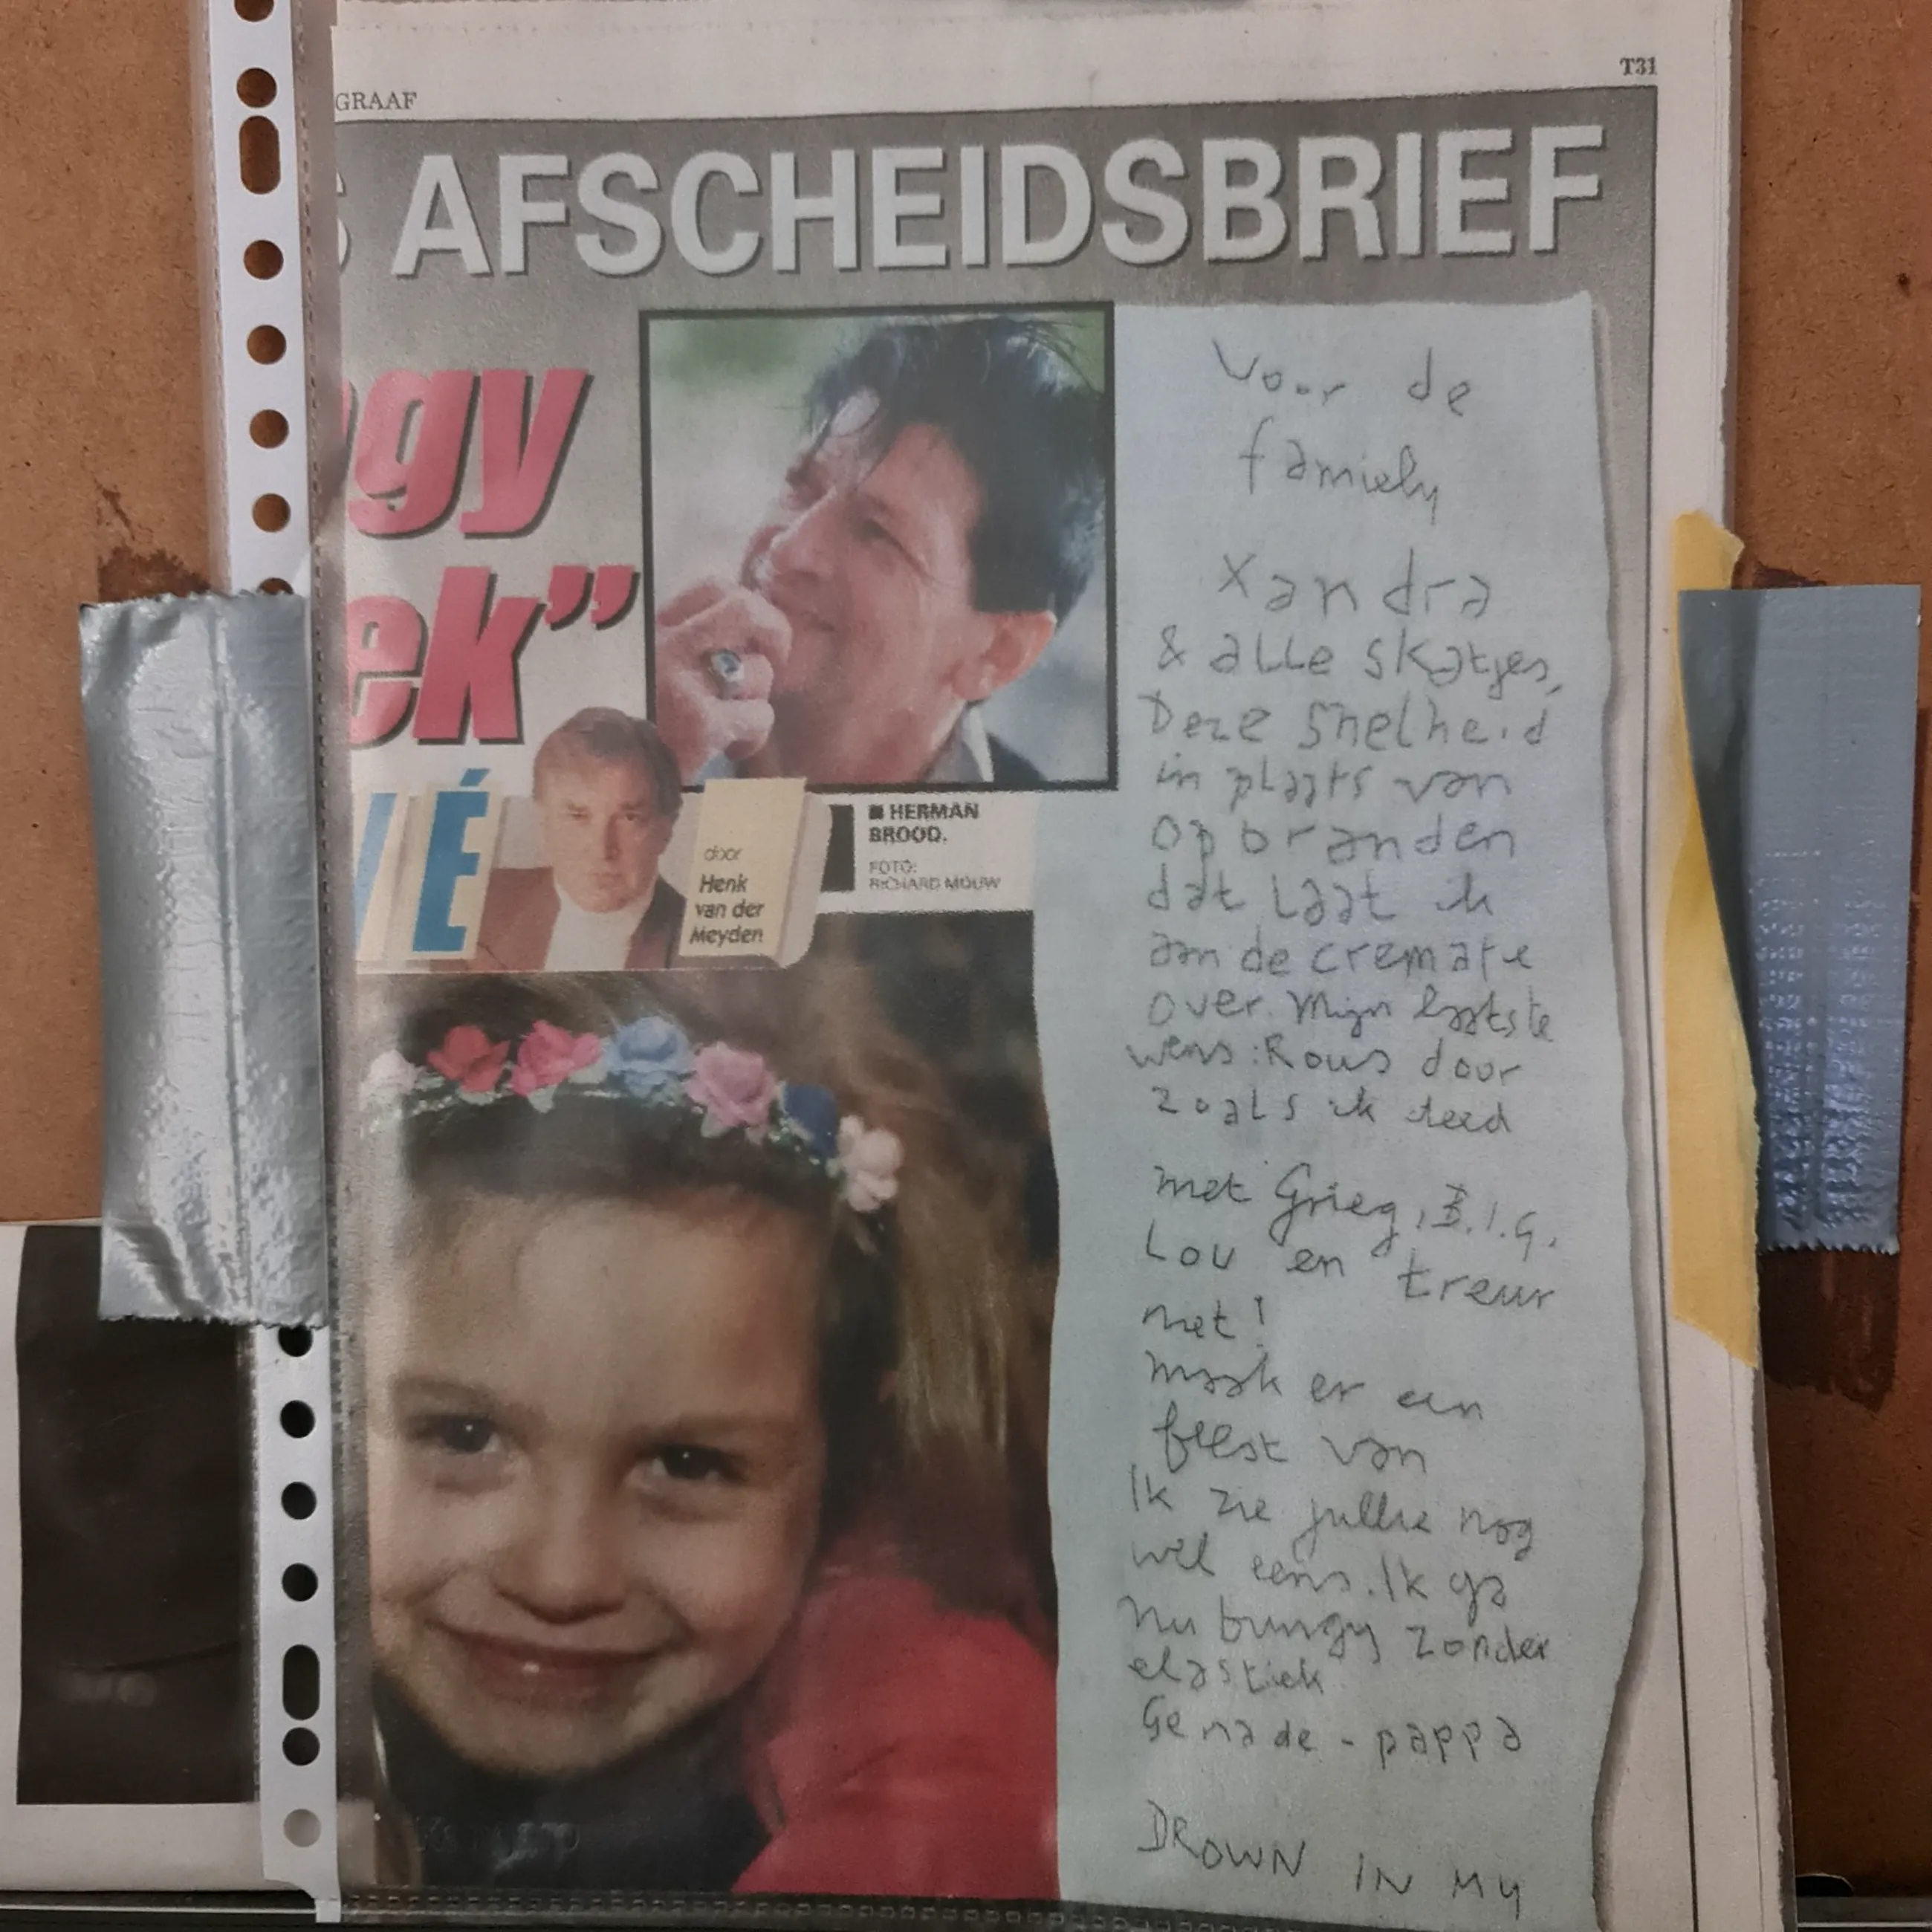 GRAAF
T31
S AFSCHEIDSBRIEF
gy
ek”
É
door
Henk
van der
Meyden
■ HERMAN
BROOD.
FOTO:
RICHARD MOUW
Voor de
famiely
Xandra
& alle skatjes,
Deze snelheid
in plaats van
opbranden
dat laat ik
aan de crematie
over. Mijn laatste
wens: Rous door
zoals ik deed
met Grieg, B.I.G.
Lou en treur
niet!
maak er een
feest van
Ik zie jullie nog
wel eens. Ik ga
nu bungy zonder
elastiek
Genade - pappa
DROWN IN MY